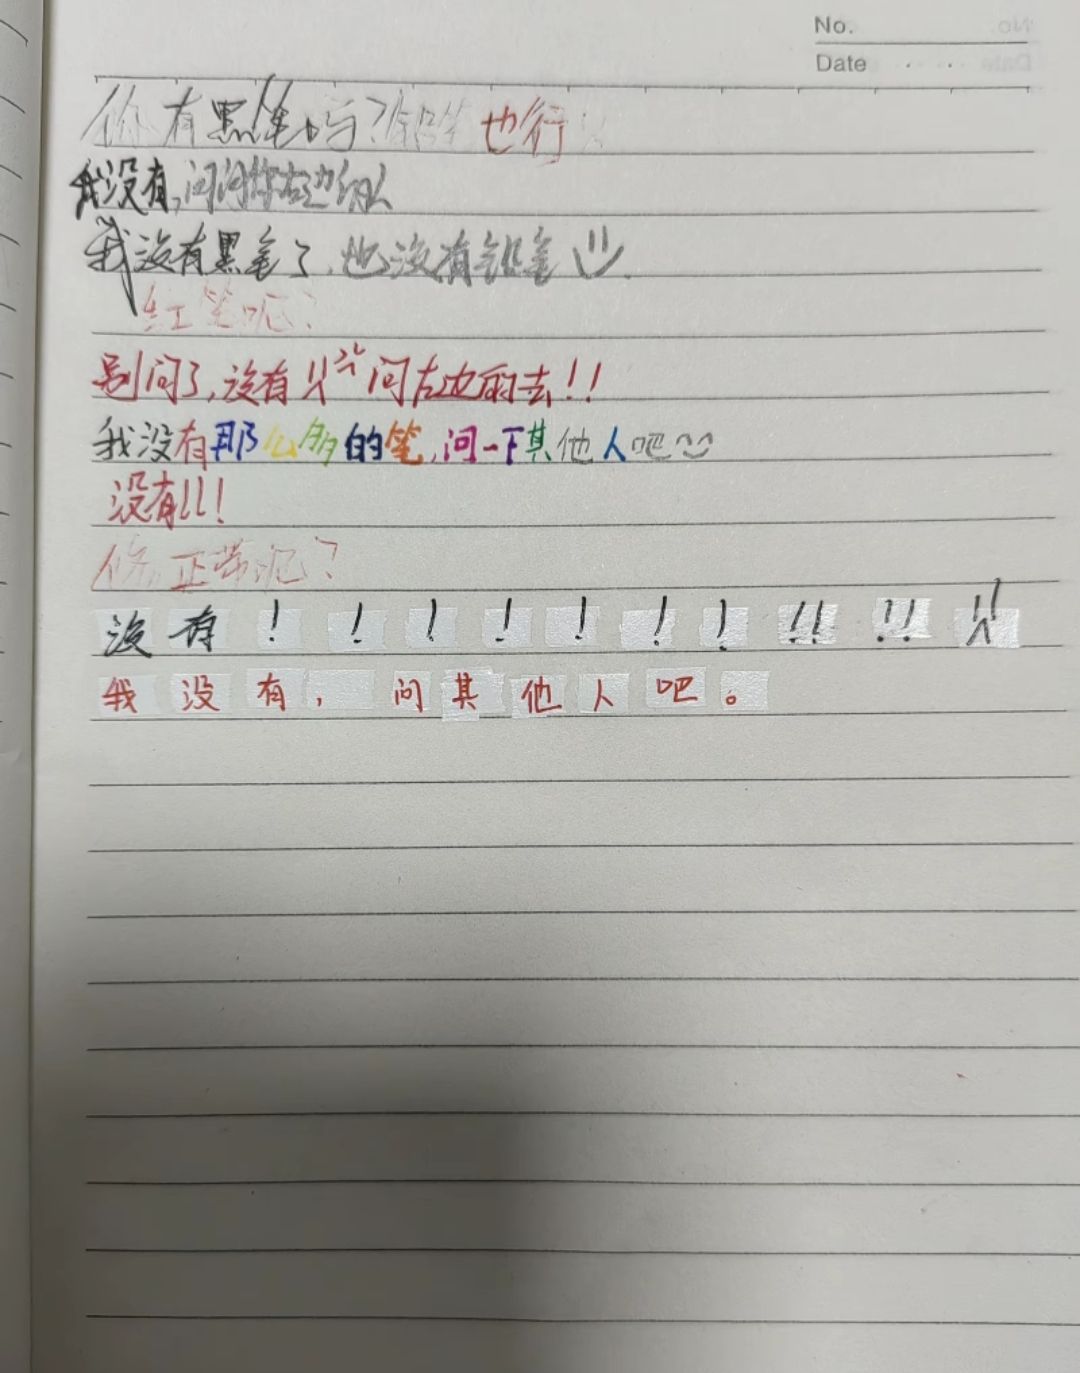 No.
Date
你有黑笔吗?铅笔也行
我没有,问问你右边的人
我没有黑笔了,也没有铅笔
红笔呢?
别问了,没有!!问右边的去!!
我没有那么多的笔,问一下其他人吧
没有!!!
修正带呢?
没有!!!!!!!!!!!!!
我没有,问其他人吧。